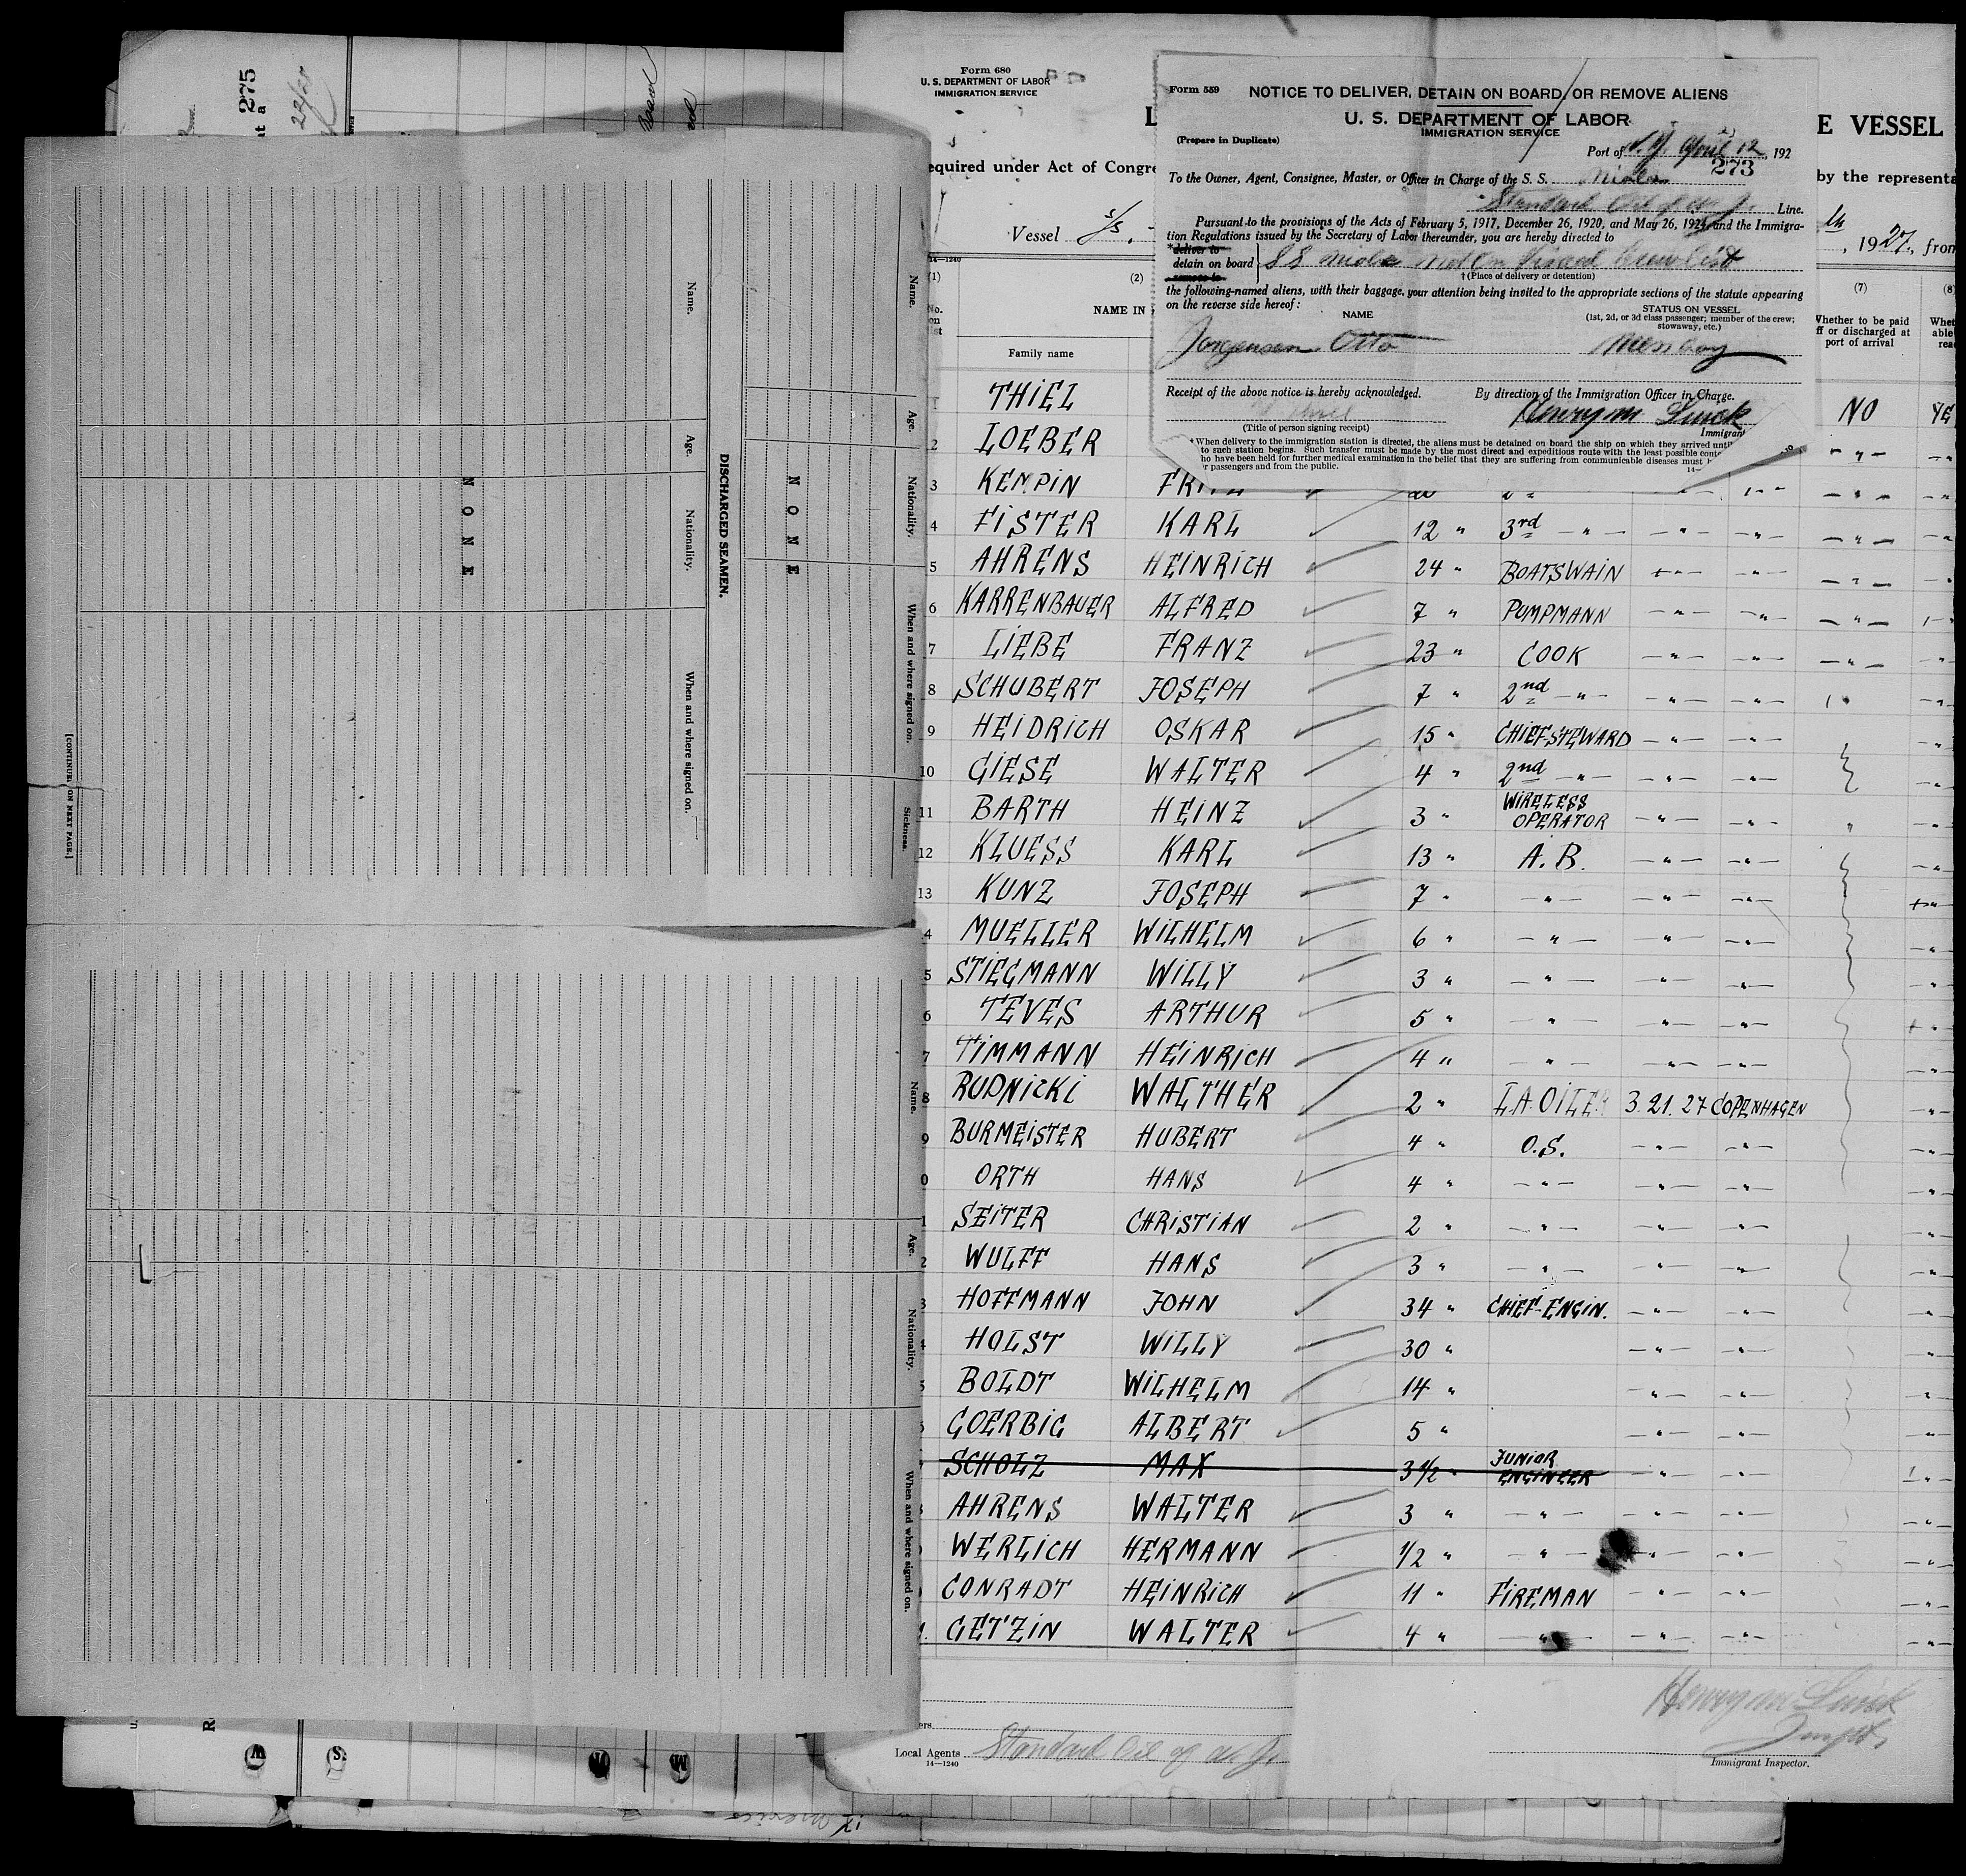 275
Form 680
U. S. DEPARTMENT OF LABOR
IMMIGRATION SERVICE
equired under Act of Congre
Vessel S/S.
14—1240
(1)
(2)
No. on list
NAME IN
Family name
Form 559
NOTICE TO DELIVER, DETAIN ON BOARD, OR REMOVE ALIENS
U. S. DEPARTMENT OF LABOR
IMMIGRATION SERVICE
(Prepare in Duplicate)
Port of N.Y. April 12, 192
273
To the Owner, Agent, Consignee, Master, or Officer in Charge of the S. S.
Standard Oil of N. J. Line.
Pursuant to the provisions of the Acts of February 5, 1917, December 26, 1920, and May 26, 1924, and the Immigra-
tion Regulations issued by the Secretary of Labor thereunder, you are hereby directed to
*deliver to
detain on board
remove to
SS Not On Visaed Crew List
† (Place of delivery or detention)
the following-named aliens, with their baggage, your attention being invited to the appropriate sections of the statute appearing
on the reverse side hereof:
NAME
STATUS ON VESSEL
(1st, 2d, or 3d class passenger; member of the crew;
stowaway, etc.)
Jorgensen Otto Messboy
Receipt of the above notice is hereby acknowledged.
By direction of the Immigration Officer in Charge.
(Title of person signing receipt)
Immigrant
When delivery to the immigration station is directed, the aliens must be detained on board the ship on which they arrived until
to such station begins. Such transfer must be made by the most direct and expeditious route with the least possible
ho have been held for further medical examination in the belief that they are suffering from communicable diseases must
r passengers and from the public.
14—
E VESSEL
by the representa
, 1927, from
(7)
(8)
Whether to be paid
ff or discharged at
port of arrival
Whet
able
rea
THIEL NO YE
2 LOEBER " "
3 KEMPIN
4 FISTER KARL 12 " 3rd " " " " "
5 AHRENS HEINRICH 24 " BOATSWAIN " " " "
6 KARRENBAUER ALFRED 7 " PUMPMANN " " " "
7 LIEBE FRANZ 23 " COOK " " " "
8 SCHUBERT JOSEPH 7 " 2nd " " " "
9 HEIDRICH OSKAR 15 " CHIEFSTEWARD " " "
10 GIESE WALTER 4 " 2nd " " " "
11 BARTH HEINZ 3 " WIRELESS OPERATOR " " " "
12 KLUESS KARL 13 " A.B. " " "
13 KUNZ JOSEPH 7 " " " " "
4 MUELLER WILHELM 6 " " " " "
5 STIEGMANN WILLY 3 " " " " "
6 TEVES ARTHUR 5 " " " " "
7 TIMMANN HEINRICH 4 " " " " "
8 RUDNICKI WALTHER 2 " 3.21.27 COPENHAGEN "
9 BURMEISTER HUBERT 4 " O.S. " " "
0 ORTH HANS 4 " " " " "
1 SEITER CHRISTIAN 2 " " " " "
2 WULFF HANS 3 " " " " "
3 HOFFMANN JOHN 34 " CHIEF-ENGIN. " " "
HOLST WILLY 30 " " " "
BOLDT WILHELM 14 " " " "
GOERBIG ALBERT 5 " " " "
SCHOLZ MAX 3 1/2 " JUNIOR ENGINEER " " "
AHRENS WALTER 3 " " " " "
WERLICH HERMANN 1/2 " " " " "
CONRADT HEINRICH 11 " FIREMAN " " "
GETZIN WALTER 4 " " " " "
Local Agents Standard Oil of N. J.
14—1240
Immigrant Inspector.
Name.
Age.
Nationality.
When and where signed on.
Sickness.
NONE
DISCHARGED SEAMEN.
Name.
Age.
Nationality.
When and where signed on.
NONE
[CONTINUE ON NEXT PAGE.]
Name.
Age.
Nationality.
When and where signed on.